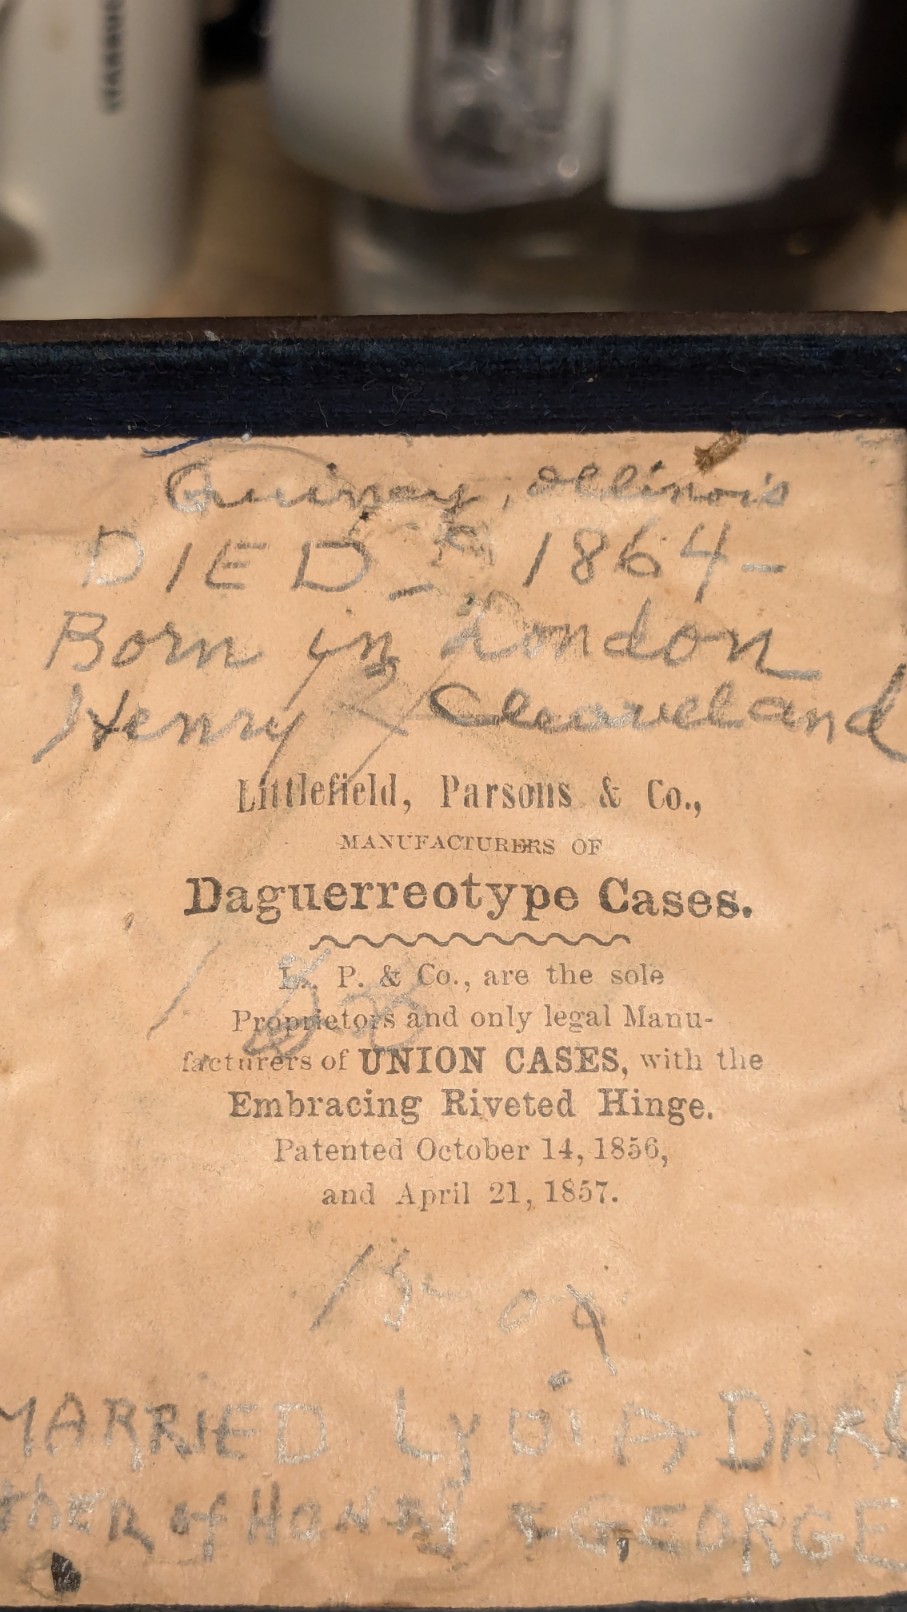 Quincy, Illinois
DIED - 1864-
Born in London
Henry Cleaveland
Littlefield, Parsons & Co.,
MANUFACTURERS OF
Daguerreotype Cases.
L. P. & Co., are the sole
Proprietors and only legal Manu-
facturers of UNION CASES, with the
Embracing Riveted Hinge.
Patented October 14, 1856,
and April 21, 1857.
MARRIED LyDiA DARL
ther of HENRY & GEORGE